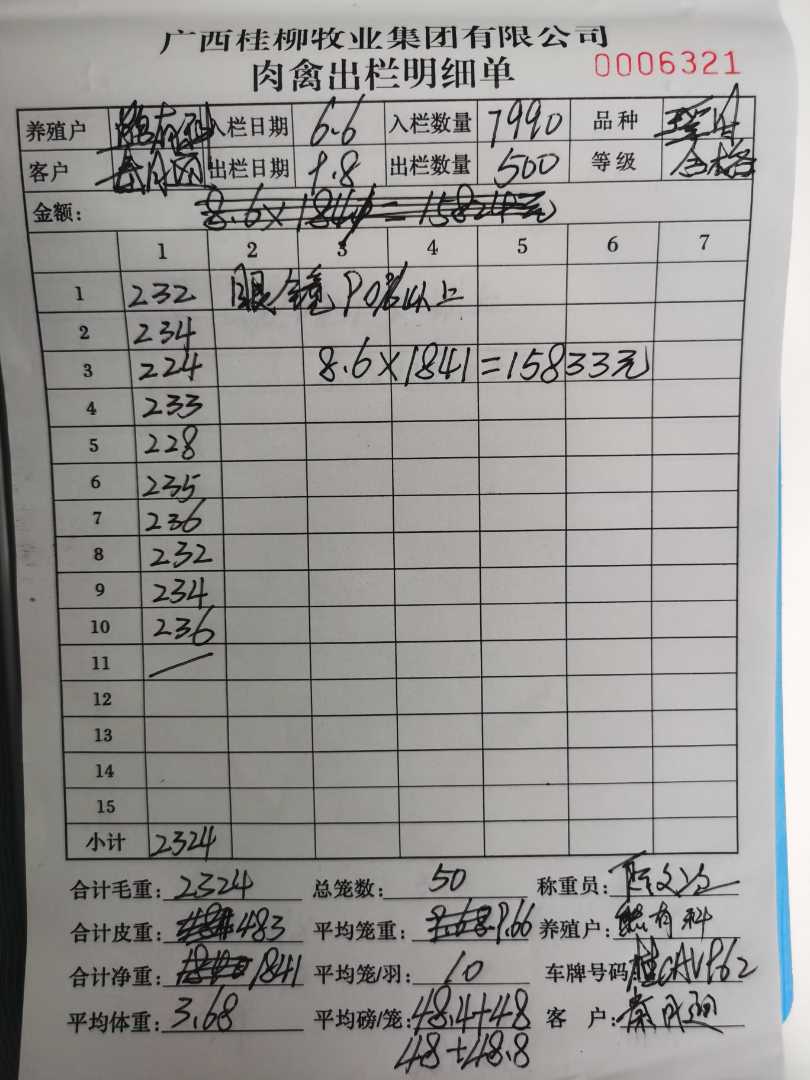 广西桂柳牧业集团有限公司
肉禽出栏明细单 0006321
养殖户 入栏日期 6.6 入栏数量 7990 品种
客户 出栏日期 9.8 出栏数量 500 等级 合格
金额:
1 2 3 4 5 6 7
1 232 眼镜90%以上
2 234
3 224 8.6×1841=15833元
4 233
5 228
6 235
7 236
8 232
9 234
10 236
11
12
13
14
15
小计 2324
合计毛重: 2324 总笼数: 50 称重员:
合计皮重: 483 平均笼重: 9.66 养殖户:
合计净重: 1841 平均笼/羽: 10 车牌号码
平均体重: 3.68 平均磅/笼: 48.4+48 客 户:
48+48.8